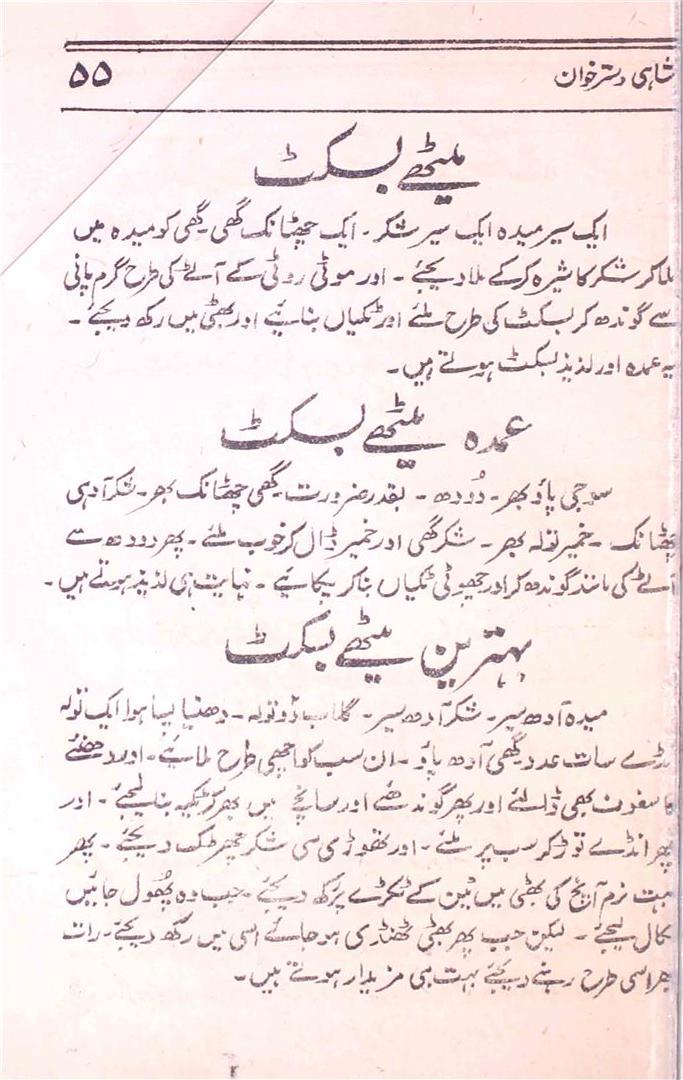 شاہی دسترخوان
۵۵
میٹھے بسکٹ
ایک سیر میدہ ایک سیر شکر۔ ایک چھٹانک گھی۔ گھی کو میدہ میں
ملا کر شکر کا شیرہ کرکے ملا دیجئے۔ اور موٹی روٹی کے آٹے کی طرح گرم پانی
سے گوندھ کر بسکٹ کی طرح ملئے اور ٹکیاں بنائیے اور بھٹی میں رکھ دیجئے۔
یہ عمدہ اور لذیذ بسکٹ ہوتے ہیں۔
عمدہ میٹھے بسکٹ
سوجی پاؤ بھر۔ دُودھ۔ بقدر ضرورت۔ گھی چھٹانک بھر۔ شکر آدہی
چھٹانک۔ خمیر تولہ بھر۔ شکر گھی اور خمیر ڈال کر خوب ملئے۔ پھر دودھ سے
آٹے کی مانند گوندھ کر اور چھوٹی ٹکیاں بنا کر پکائیے۔ نہایت ہی لذیذ ہوتے ہیں۔
بہترین میٹھے بسکٹ
میدہ آدھ سیر۔ شکر آدھ سیر۔ گلاب دو تولہ۔ دھنیا پسا ہوا ایک تولہ
انڈے سات عدد گھی آدھ پاؤ۔ ان سب کو اچھی طرح ملائیے۔ اور دھنئے
کا سفوف بھی ڈالئے اور پھر گوندھئے اور سانچے میں بھر کر ٹکیہ بنا لیجئے۔ اور
پھر انڈے توڑ کر سب پر ملئے۔ اور تھوڑی سی شکر چھڑک دیجئے۔ پھر
بہت نرم آنچ کی بھٹی میں ٹین کے ٹکڑے پر رکھ دیجئے۔ جب وہ پھُول جائیں
نکال لیجئے۔ لیکن جب پھر بھٹی ٹھنڈی ہو جائے اسی میں رکھ دیجئے۔ رات
بھر اسی طرح رہنے دیجئے بہت ہی مزیدار ہوتے ہیں۔